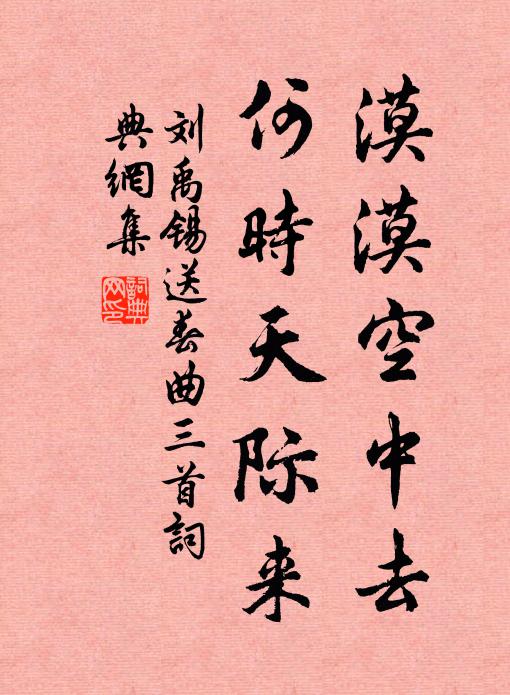 漠漠空中去
何時天际来
刘禹锡送春曲三首詞
典網集
詞典
网印